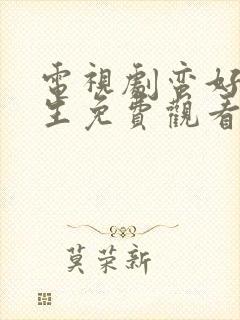 電視劇蛮好
生免費觀看
莫荣新